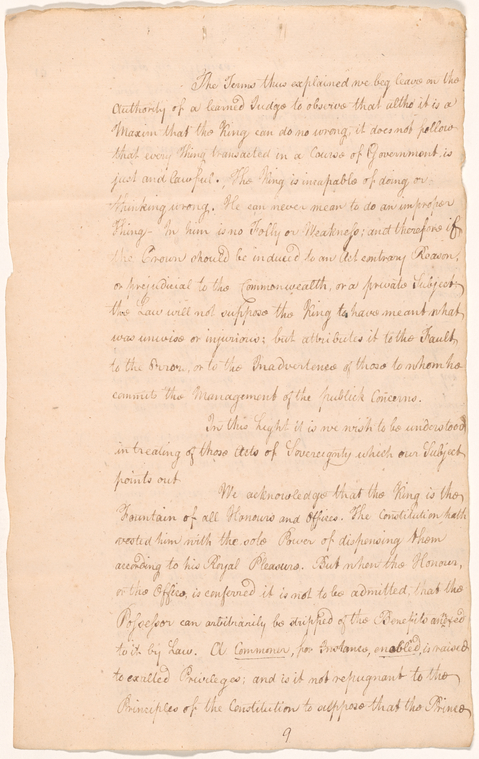 The Terms thus explained we beg leave on the
Authority of a learned Judge to observe that altho it is a
Maxim that the King can do no wrong, it does not follow
that every thing transacted in a Course of Government, is
just and lawful. The King is incapable of doing or
thinking wrong. He can never mean to do an improper
thing. In him is no Folly or Weakness; and therefore if
the Crown should be induced to an Act contrary Reason,
or prejudicial to the Commonwealth, or a private Subject
the Law will not suppose the King to have meant what
was unwise or injurious; but attributes it to the Fault
to the Error, or to the Inadvertence of those to whom he
commits the Management of the publick Concerns.
In this Light it is we wish to be understood
in treating of those Acts of Sovereignty which our Subject
points out
We acknowledge that the King is the
Fountain of all Honours and Offices. The Constitution hath
vested him with the sole Power of dispensing them
according to his Royal Pleasure. But when the Honour,
or the Office, is conferred it is not to be admitted, that the
Possessor can arbitrarily be stripped of the Benefits annexed
to it by Law. A Commoner, for Instance, enobled, is raised
to exalted Privileges; and is it not repugnant to the
Principles of the Constitution to suppose that the Prince
9